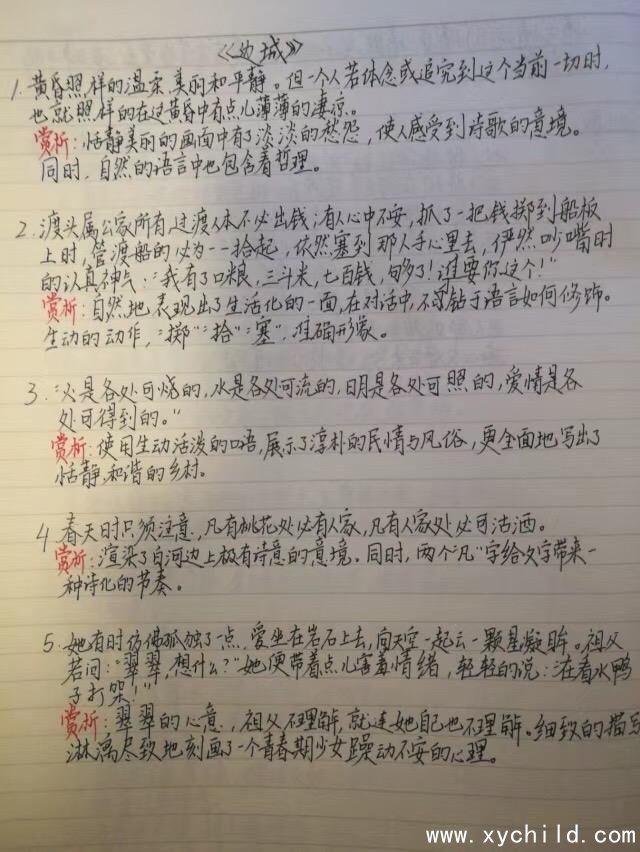 《边城》
1. 黄昏照样的温柔、美丽和平静。但一个人若体念或追究到这个当前一切时,
也就照样的在这黄昏中有点儿薄薄的凄凉。
赏析:恬静美丽的画面中有了淡淡的愁怨,使人感受到诗歌的意境。
同时,自然的语言中也包含着哲理。
2. 渡头属公家所有,过渡人本不必出钱;有人心中不安,抓了一把钱掷到船板
上时,管渡船的必为一一拾起,依然塞到那人手心里去,俨然吵嘴时
的认真神气:“我有了口粮,三斗米,七百钱,够了!谁要你这个!”
赏析:自然地表现出了生活化的一面,在对话中,不拘钻于语言如何修饰。
生动的动作,“掷”“拾”“塞”,准确形象。
3. “火是各处可烧的,水是各处可流的,日月是各处可照的,爱情是各
处可得到的。”
赏析:使用生动活泼的口语,展示了淳朴的民情与风俗,更全面地写出了
恬静、和谐的乡村。
4. 春天时只须注意,凡有桃花处必有人家,凡有人家处必可沽酒。
赏析:渲染了白河边上极有诗意的意境。同时,两个“凡”字给文字带来一
种诗化的节奏。
5. 她有时仿佛孤独了一点,爱坐在岩石上去,向天空一起云一颗星凝眸。祖父
若问:“翠翠,想什么?”她便带着点儿害羞情绪,轻轻的说:“在看水鸭
子打架!”
赏析:翠翠的心意,祖父不理解,就连她自己也不理解。细致的描写
淋漓尽致地刻画了一个青春期少女躁动不安的心理。
www.xychild.com